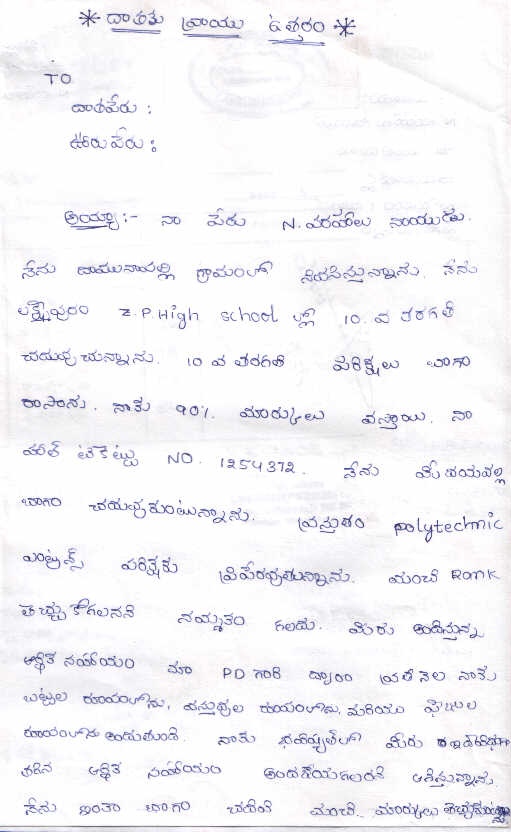 * దాతకు వ్రాయు ఉత్తరం *
TO
దాతపేరు :
ఊరు పేరు :
అయ్యా :- నా పేరు N. వరహాలు నాయుడు.
నేను గ్రామంలో నివసిస్తున్నాను. నేను
లక్ష్మీపురం Z.P. High school లో 10. వ తరగతి
చదువుచున్నాను. 10 వ తరగతి పరీక్షలు బాగా
రాసాను. నాకు 90% మార్కులు వస్తాయి. నా
హాల్ టికెట్టు NO. 1254372. నేను మీ దయవల్ల
బాగా చదువుకుంటున్నాను. ప్రస్తుతం polytechnic
ఎంట్రన్స్ పరీక్షకు ప్రిపేరవుతున్నాను. మంచి Rank
తెచ్చుకోగలనని నమ్మకం గలదు. మీరు అందిస్తున్న
ఆర్థిక సహాయం మా PD గారి ద్వారా ప్రతి నెల నాకు
బట్టల రూపంలోను, వస్తువుల రూపంలోను, మరియు
రూపంలోను అందుతుంది. నాకు భవిష్యత్ లో మీరు
తగిన ఆర్థిక సహాయం అందజేయగలరని ఆశిస్తున్నాను.
నేను ఇంకా బాగా చదివి మంచి మార్కులు